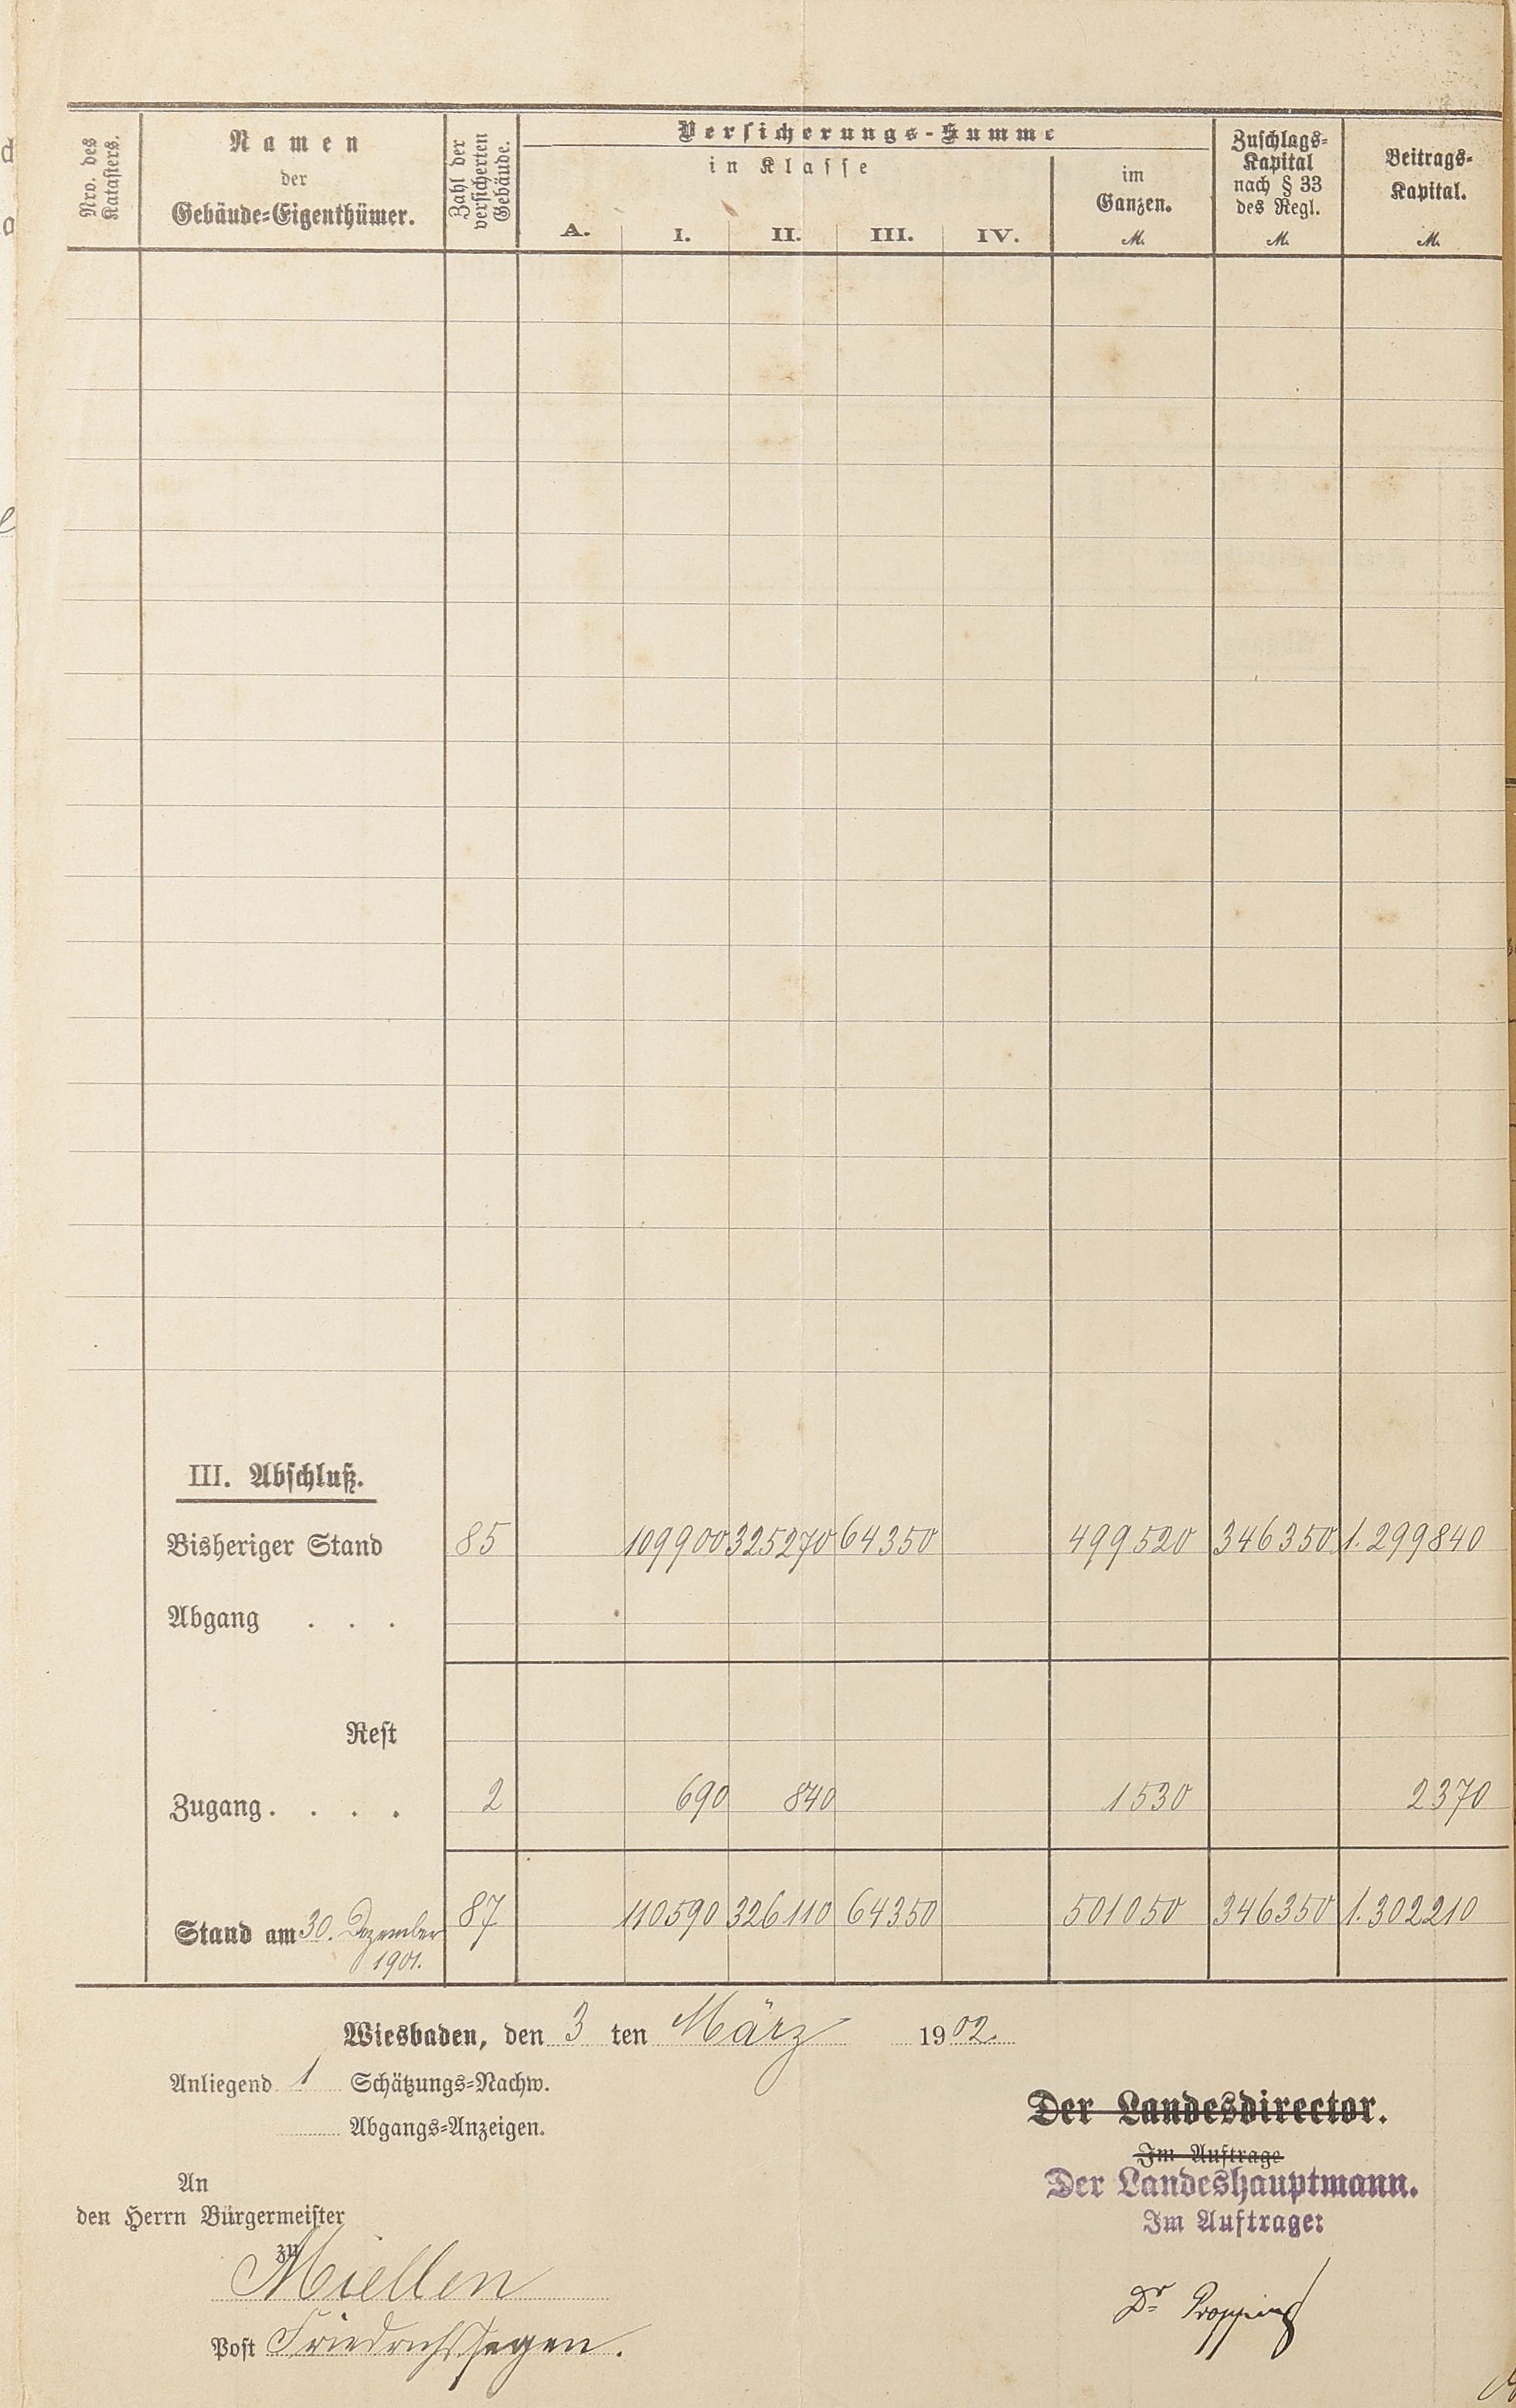 Nro. des Katasters.
Namen
der
Gebäude=Eigenthümer.
Zahl der versicherten Gebäude.
Versicherungs-Summe
in Klasse
A. I. II. III. IV.
im
Ganzen.
M.
Zuschlags=
Kapital
nach § 33
des Regl.
M.
Beitrags=
Kapital.
M.
III. Abschluß.
Bisheriger Stand 85 109900 325270 64350 499520 346350 1.299840
Abgang . . .
Rest
Zugang. . . . 2 690 840 1530 2370
Stand am 30. Dezember 87 110590 326110 64350 501050 346350 1.302210
1901.
Wiesbaden, den 3 ten März 1902.
Anliegend 1 Schätzungs=Nachw.
Abgangs=Anzeigen.
Der Landesdirector.
Im Auftrage
Der Landeshauptmann.
Im Auftrage:
An
den Herrn Bürgermeister
zu
Miellen
Dr
Post Friedrichssegen.